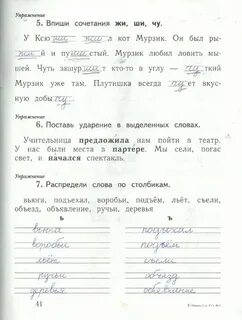 Упражнение
5. Впиши сочетания жи, ши, чу.
У Ксюши жил кот Мурзик. Он был ры-
жий и пушистый. Мурзик любил ловить мы-
шей. Чуть зашуршит кто-то в углу — чуткий
Мурзик уже там. Плутишка всегда чует вкус-
ную добычу.
Упражнение
6. Поставь ударение в выделенных словах.
Учительница предложила нам пойти в театр.
У нас были места в партере. Мы сели, погас
свет, и начался спектакль.
Упражнение
7. Распредели слова по столбикам.
вьюга, подъехал, воробьи, подъём, льёт, съели,
объезд, объявление, ручьи, деревья
ь ъ
вьюга подъехал
воробьи подъём
льёт съели
ручьи объезд
деревья объявление
41